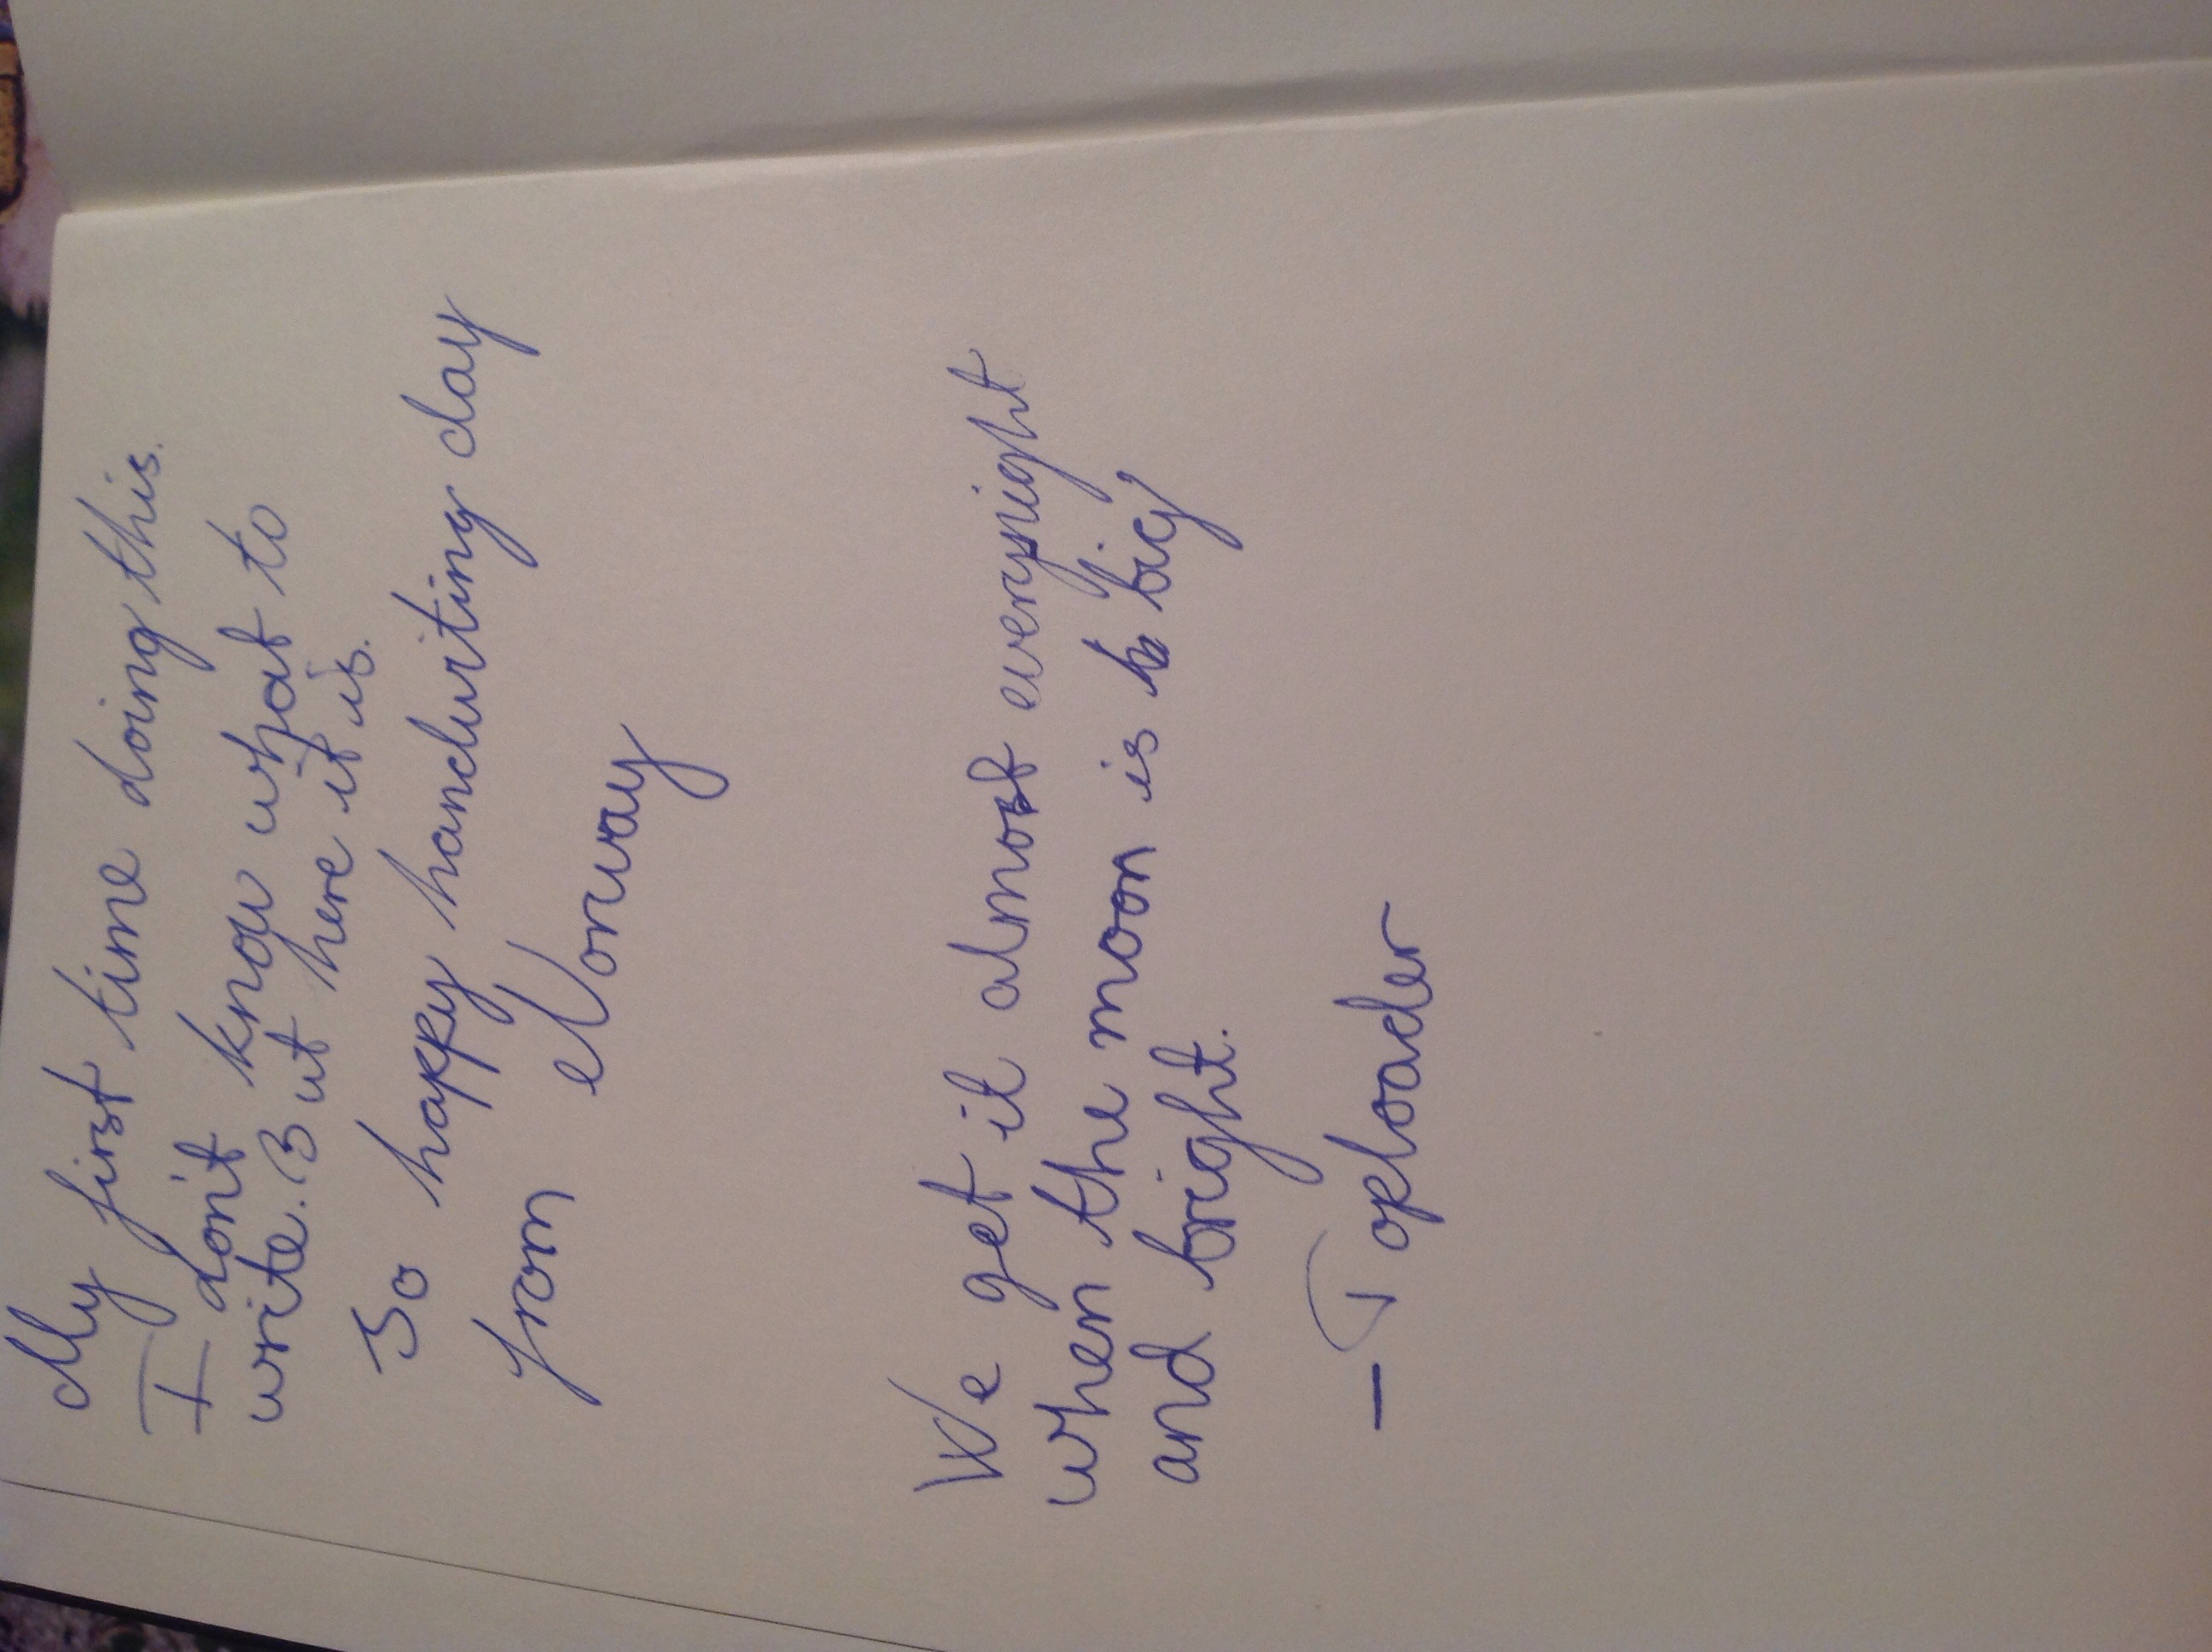 My first time doing this.
I don't know what to
write. But here it is.
So happy handwriting day
from Norway
We get it almost everynight
when the moon is big
and bright.
– Toploader